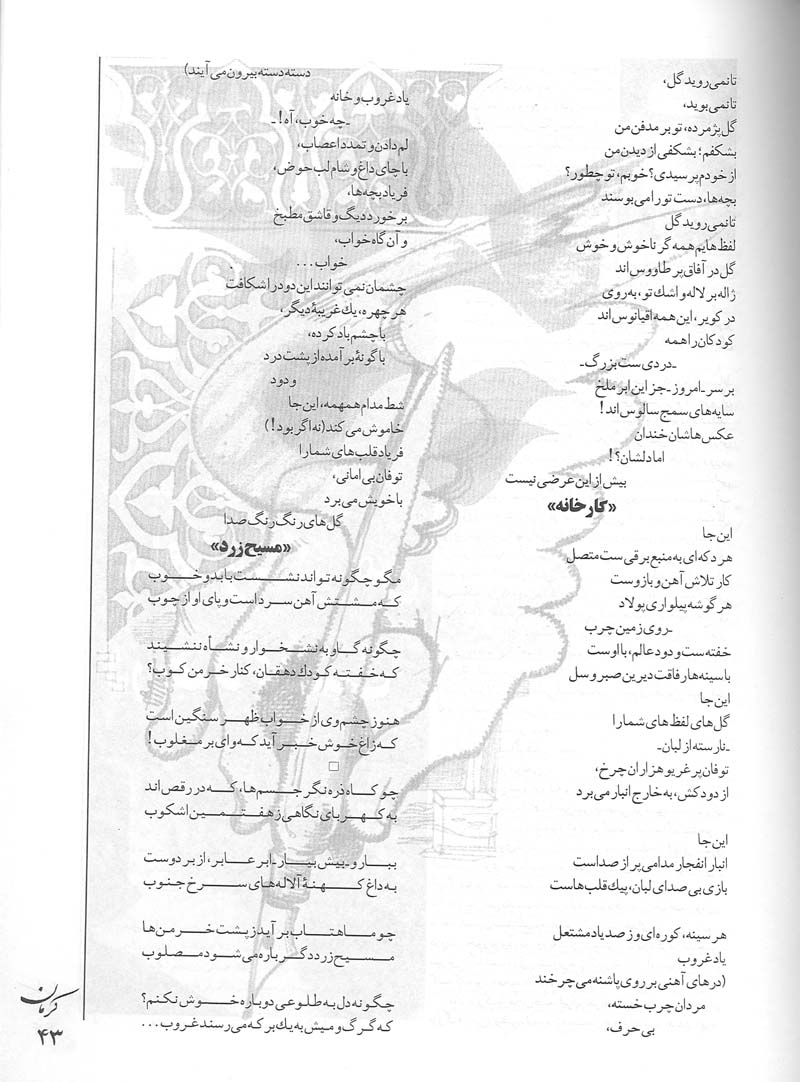 تا نمی روید گل،
تا نمی بوید،
گل پژمرده، تو بر مدفن من
بشکفم؛ بشکفی از دیدن من
از خودم پرسیدی؟ خوبم، تو چطور؟
بچه ها، دست تو را می بوسند
تا نمی روید گل
لفظ هایم همه گر ناخوش و خوش
گل در آفاق پر طاووس اند
ژاله بر لاله و اشك تو، به روی
در کویر، این همه اقیانوس اند
کودکان را همه
ـ دردی ست بزرگ ـ
بر سر ـ امروز ـ جز این ابر ملخ
سایه های سمج سالوس اند!
عکس هاشان خندان
اما دلشان؟!
بیش از این عرضی نیست
«کارخانه»
این جا
هر دکه ای به منبع برقی ست متصل
کار تلاش آهن و بازوست
هر گوشه پیلواری پولاد
ـ روی زمین چرب
خفته ست و دود عالم، با اوست
با سینه ها رفاقت دیرین صبر و سل
این جا
گل های لفظ های شما را
ـ نارسته از لبان ـ
توفان پر غریو هزاران چرخ،
از دودکش، به خارج انبار می برد
این جا
انبار انفجار مدامی پر از صداست
بازی بی صدای لبان، پیك قلب هاست
هر سینه، کوره ای وز صد یاد مشتعل
یاد غروب
(درهای آهنی بر روی پاشنه می چرخند
مردان چرب خسته،
بی حرف،
دسته دسته بیرون می آیند)
یاد غروب و خانه
ـ چه خوب، آه! ـ
لم دادن و تمدد اعصاب،
با چای داغ و شام لب حوض،
فریاد بچه ها،
برخورد دیگ و قاشق مطبخ
و آن گاه خواب،
خواب...
چشمان نمی توانند این دود را شکافت
هر چهره، یك غریبهٔ دیگر،
با چشم باد کرده،
با گونهٔ برآمده از پشت درد
و دود
شط مدام همهمه، این جا
خاموش می کند (نه اگر بود!)
فریاد قلب های شما را
توفان بی امانی،
با خویش می برد
گل های رنگ رنگ صدا
«مسیح زرد»
مگو چگونه تواند نشست با بد و خوب
که مشتش آهن سرد است و پای او از چوب
چگونه گاو به نشخوار و نشأه ننشیند
که خفته کودك دهقان، کنار خرمن کوب؟
هنوز چشم وی از خواب ظهر سنگین است
که زاغ خوش خبر آید که وای بر مغلوب!
□
چو کاه ذره نگر جسم ها، که در رقص اند
به کهربای نگاهی ز هفتمین اشکوب
ببار و ـ بیش بیار ـ ابر عابر، از بر دوست
به داغ کهنهٔ آلاله های سرخ جنوب
چو ماهتاب برآید ز پشت خرمن ها
مسیح زرد دگرباره می شود مصلوب
چگونه دل به طلوعی دوباره خوش نکنم؟
که گرگ و میش به یك برکه می رسند غروب...
کرمان
۴۳